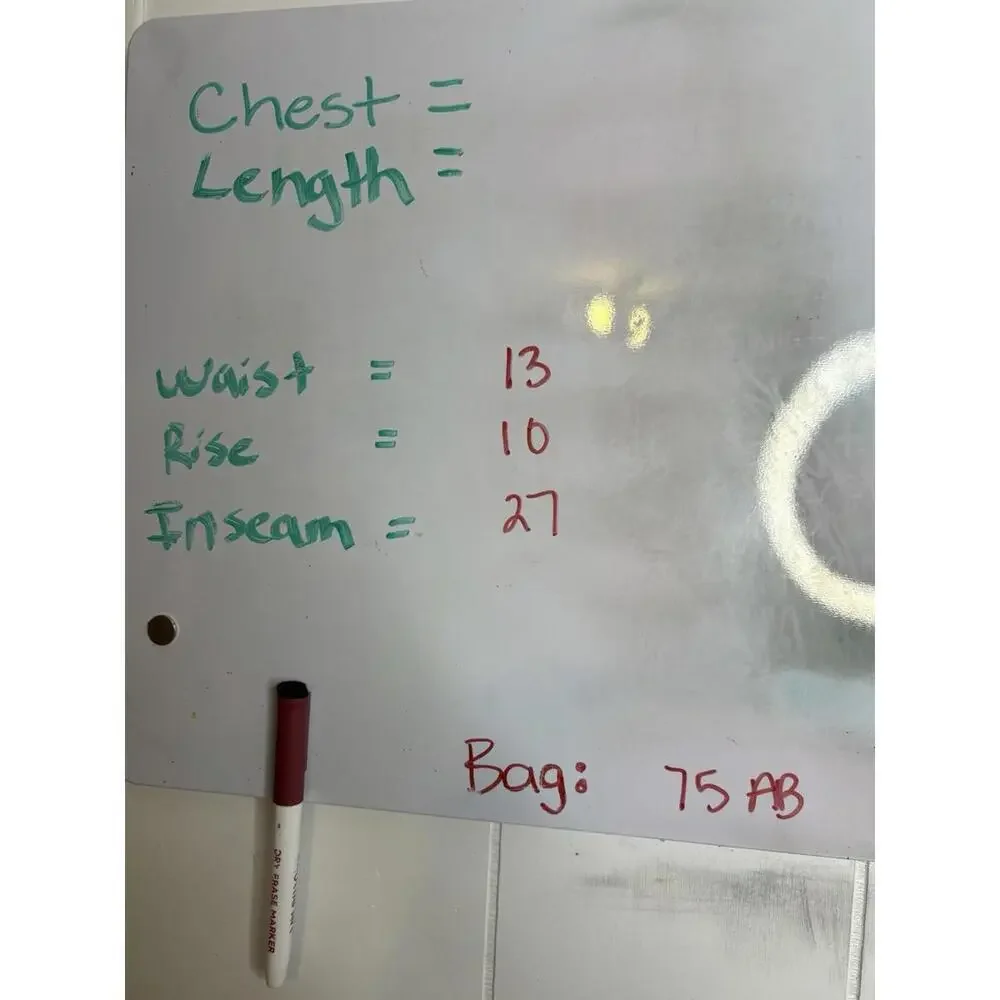 Chest =
Length =
Waist = 13
Rise = 10
Inseam = 27
Bag: 75 AB
DRY ERASE MARKER